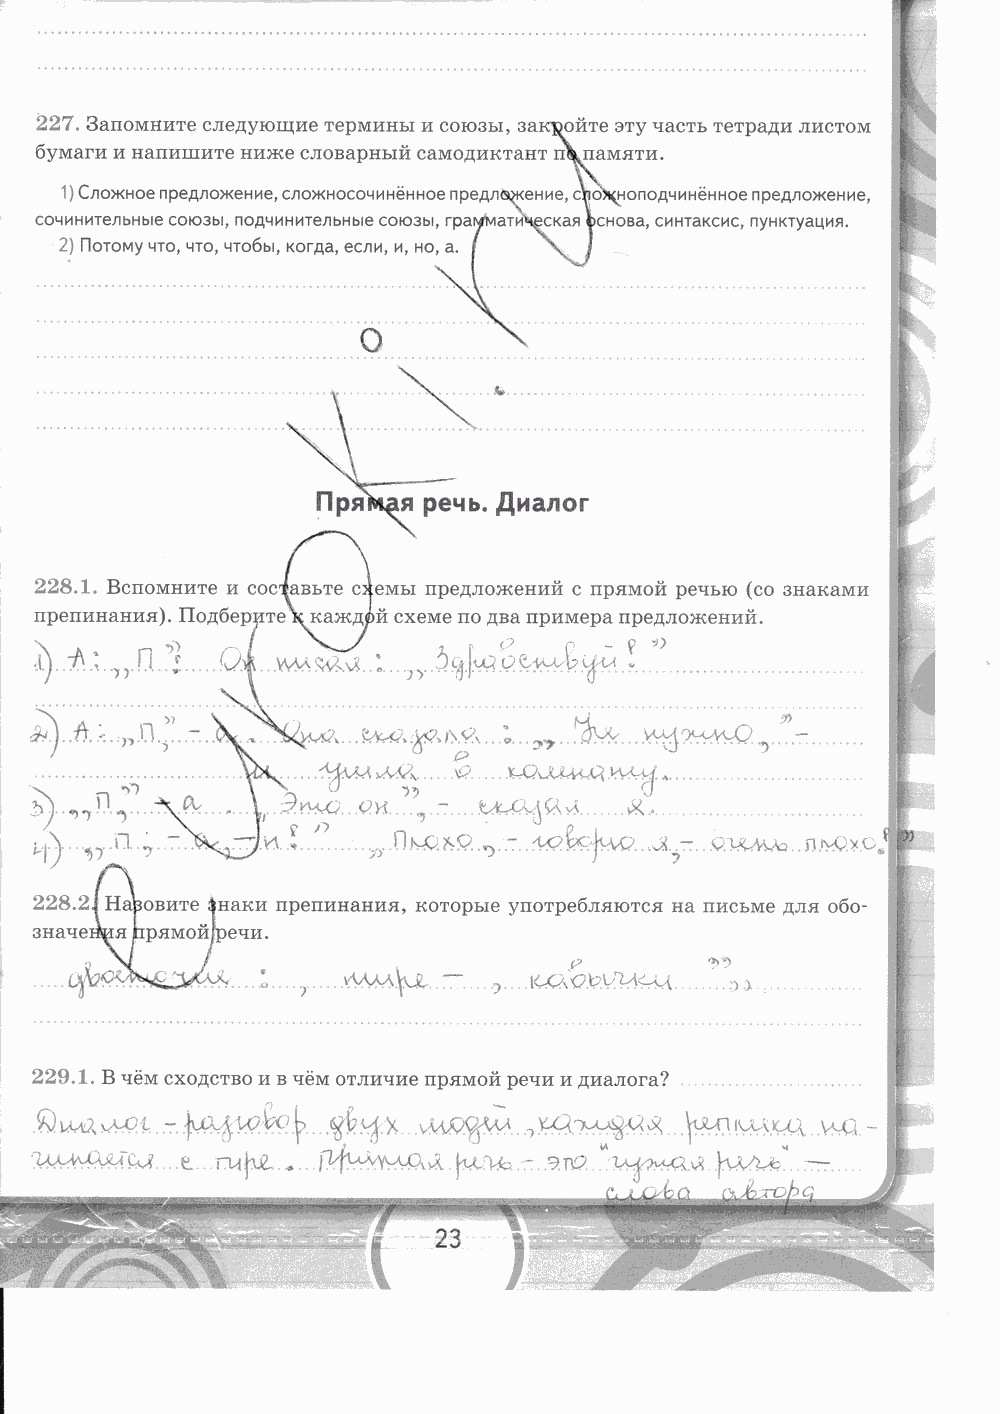 227. Запомните следующие термины и союзы, закройте эту часть тетради листом
бумаги и напишите ниже словарный самодиктант по памяти.
1) Сложное предложение, сложносочинённое предложение, сложноподчинённое предложение,
сочинительные союзы, подчинительные союзы, грамматическая основа, синтаксис, пунктуация.
2) Потому что, что, чтобы, когда, если, и, но, а.
Прямая речь. Диалог
228.1. Вспомните и составьте схемы предложений с прямой речью (со знаками
препинания). Подберите к каждой схеме по два примера предложений.
1) А: „П"! Он писал: „Здравствуй!"
2) А: „П," – а. Она сказала: „Не нужно," –
и ушла в комнату.
3) „П," – а. „Это он", – сказал я.
4) „П, – а, – п!" „Плохо, – говорю я, – очень плохо!"
228.2. Назовите знаки препинания, которые употребляются на письме для обо-
значения прямой речи.
двоеточие : , тире – , кавычки "„
229.1. В чём сходство и в чём отличие прямой речи и диалога?
Диалог – разговор двух людей, каждая реплика на-
чинается с тире. Прямая речь – это "чужая речь" –
слова автора
23